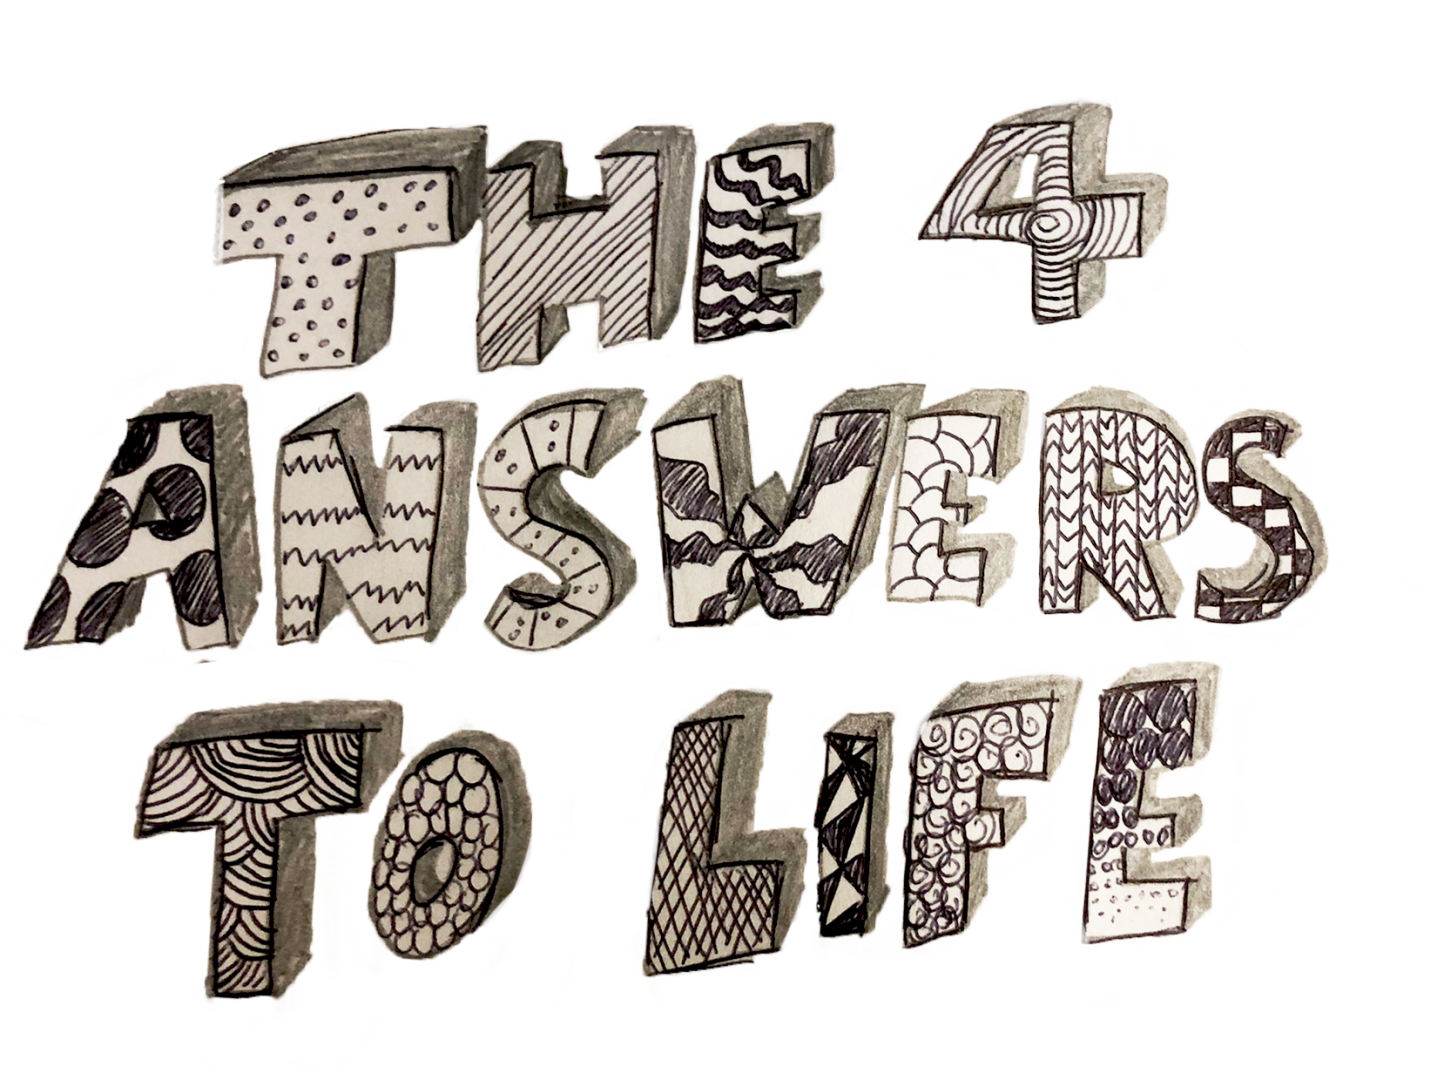 THE 4
ANSWERS
TO LIFE